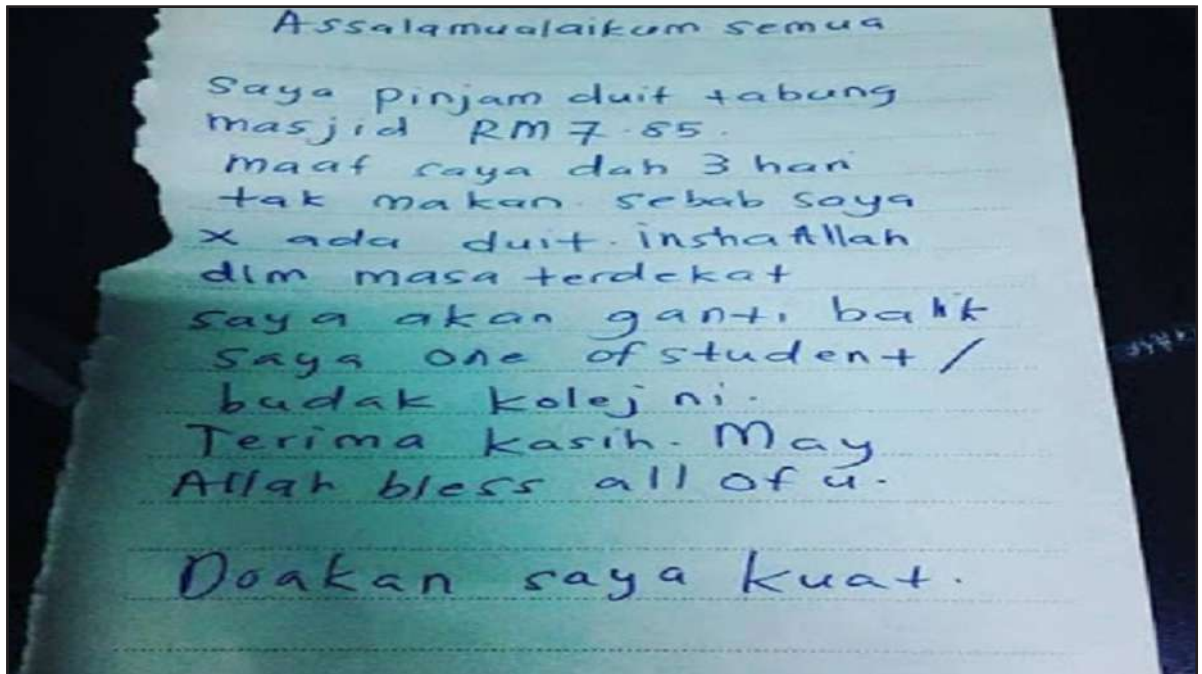 Assalamualaikum semua
Saya pinjam duit tabung
masjid RM 7.85.
maaf saya dah 3 hari
tak makan sebab saya
x ada duit. inshaAllah
dlm masa terdekat
saya akan ganti balik
saya one of student /
budak kolej ni.
Terima kasih. May
Allah bless all of u.
Doakan saya kuat.